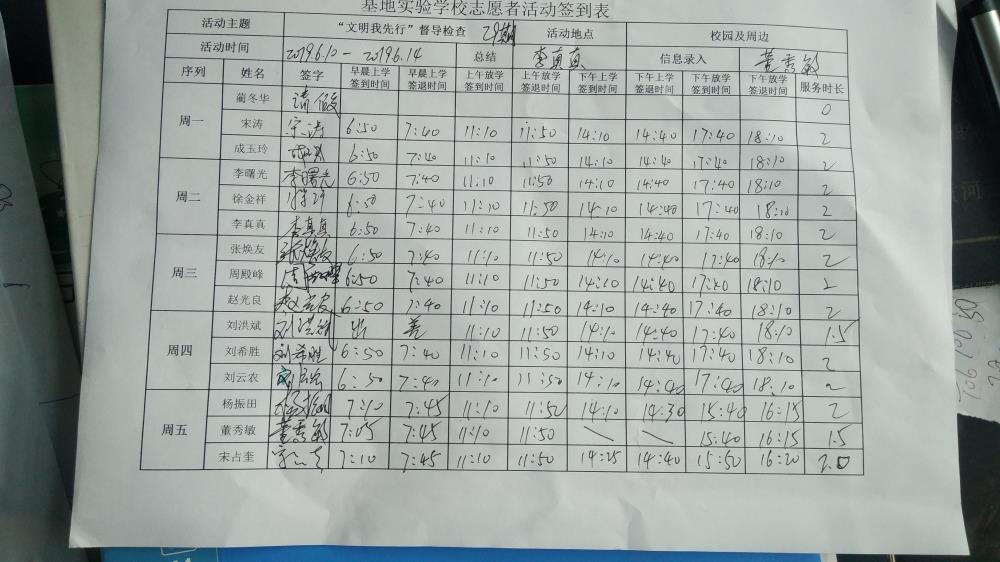 基地实验学校志愿者活动签到表
活动主题 “文明我先行”督导检查 29期 活动地点 校园及周边
活动时间 2019.6.10-2019.6.14 总结 李真真 信息录入 董秀敏
序列 姓名 签字 早晨上学签到时间 早晨上学签退时间 上午放学签到时间 上午放学签退时间 下午上学签到时间 下午上学签退时间 下午放学签到时间 下午放学签退时间 服务时长
周一 蔺冬华 请假 0
宋涛 宋涛 6:50 7:40 11:10 11:50 14:10 14:40 17:40 18:10 2
成玉玲 6:50 7:40 11:10 11:50 14:10 14:40 17:40 18:10 2
周二 李曙光 李曙光 6:50 7:40 11:10 11:50 14:10 14:40 17:40 18:10 2
徐金祥 6:50 7:40 11:10 11:50 14:10 14:40 17:40 18:10 2
李真真 李真真 6:50 7:40 11:10 11:50 14:10 14:40 17:40 18:10 2
周三 张焕友 张焕友 6:50 7:40 11:10 11:50 14:10 14:40 17:40 18:10 2
周殿峰 6:50 7:40 11:10 11:50 14:10 14:40 17:40 18:10 2
赵光良 6:50 7:40 11:10 11:50 14:10 14:40 17:40 18:10 2
周四 刘洪斌 刘洪斌 出 差 11:10 11:50 14:10 14:40 17:40 18:10 1.5
刘希胜 刘希胜 6:50 7:40 11:10 11:50 14:10 14:40 17:40 18:10 2
刘云农 6:50 7:40 11:10 11:50 14:10 14:40 17:40 18:10 2
周五 杨振田 7:10 7:45 11:10 11:50 14:10 14:30 15:40 16:15 2
董秀敏 董秀敏 7:05 7:45 11:10 11:50 15:40 16:15 1.5
宋占奎 7:10 7:45 11:10 11:50 14:25 14:40 15:50 16:20 2.0